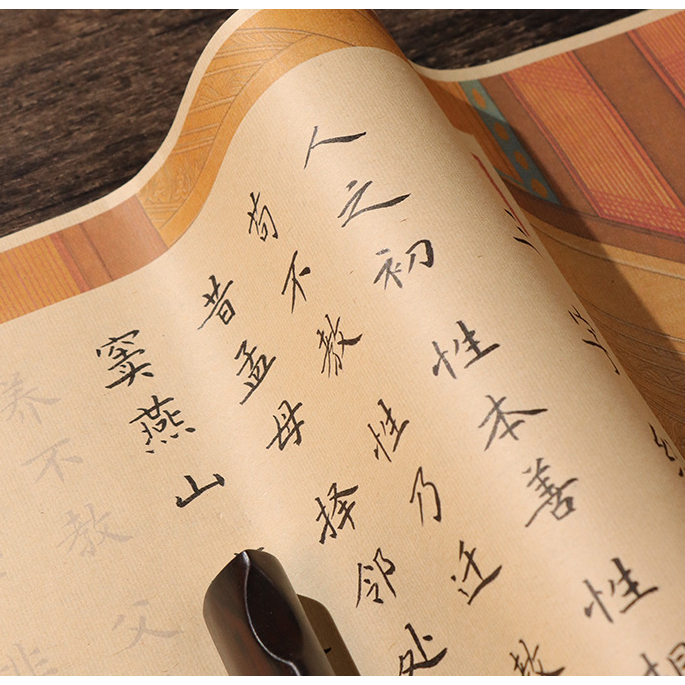 人之初性本善性相
苟不教性乃迁教
昔孟母择邻处
窦燕山
养不教父